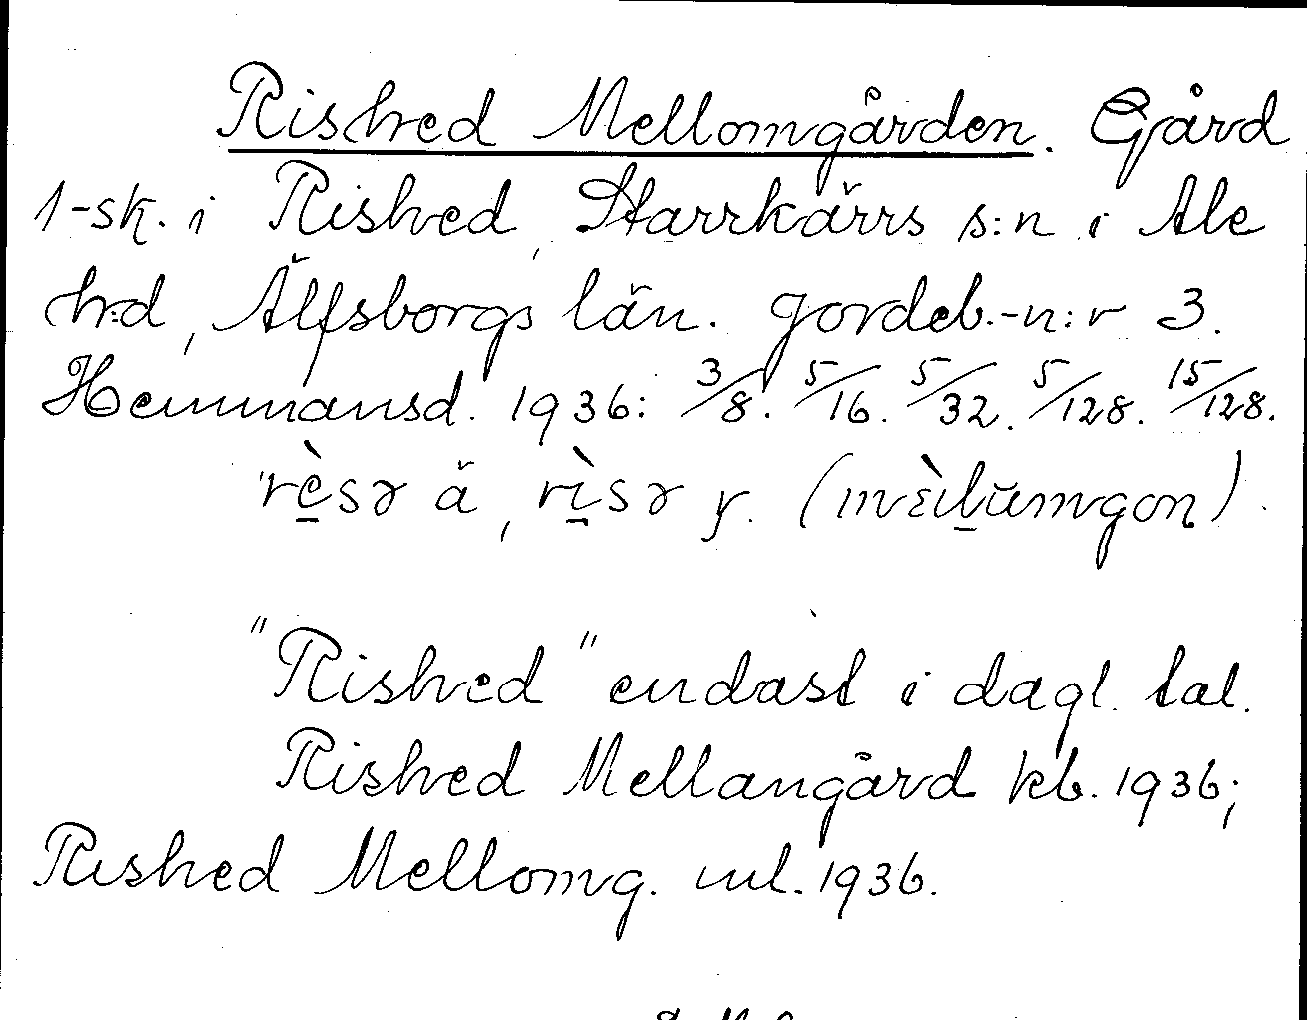 Rished Mellomgården. Gård
1-sk. i Rished, Starrkärrs s:n i Ale
h:d, Älfsborgs län. Jordeb.-n:r 3.
Hemmansd. 1936: 3/8. 5/16. 5/32. 5/128. 15/128.
rèsə ä, rìsə y. (mèilŭmgon).
"Rished" endast i dagl. tal.
Rished Mellangård kb. 1936;
Rished Mellomg. ml. 1936.